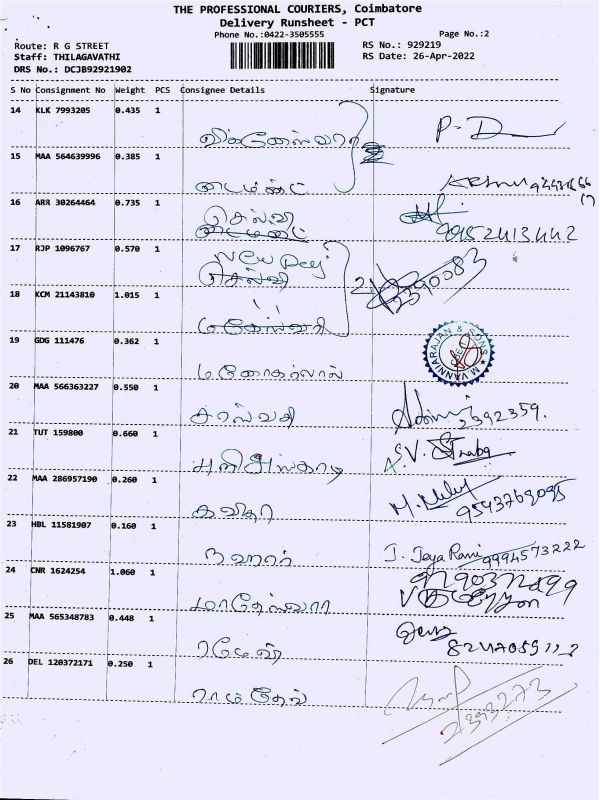 THE PROFESSIONAL COURIERS, Coimbatore
Delivery Runsheet - PCT
Phone No.:0422-3505555
Page No.:2
Route: R G STREET
RS No.: 929219
Staff: THILAGAVATHI
RS Date: 26-Apr-2022
DRS No.: DCJB92921902
S No Consignment No Weight PCS Consignee Details Signature
14 KLK 7993205 0.435 1
விக்னேஸ்வரா P-D
15 MAA 564639996 0.385 1
டைமண்ட்
16 ARR 30264464 0.735 1
செல்வி
டைமண்ட் 9952413442
17 RJP 1096767 0.570 1
New
செல்வி 2390083
18 KCM 21143810 1.015 1
மகேஸ்வரி
19 GDG 111476 0.362 1
மனோகர்லால் M VANNIARAJAN & SONS
20 MAA 566363227 0.550 1
சரஸ்வதி 2392359.
21 TUT 159800 0.660 1
S.V.
22 MAA 286957190 0.260 1
கவிதா 9543769095
23 HBL 11581907 0.160 1
நஹார் J. Jeya Rani 9994573222
24 CNR 1624254 1.060 1
மாதேஸ்வரா
25 MAA 565348783 0.448 1
ரமேஷ்
26 DEL 120372171 0.250 1
ராமதேவ் 2393273